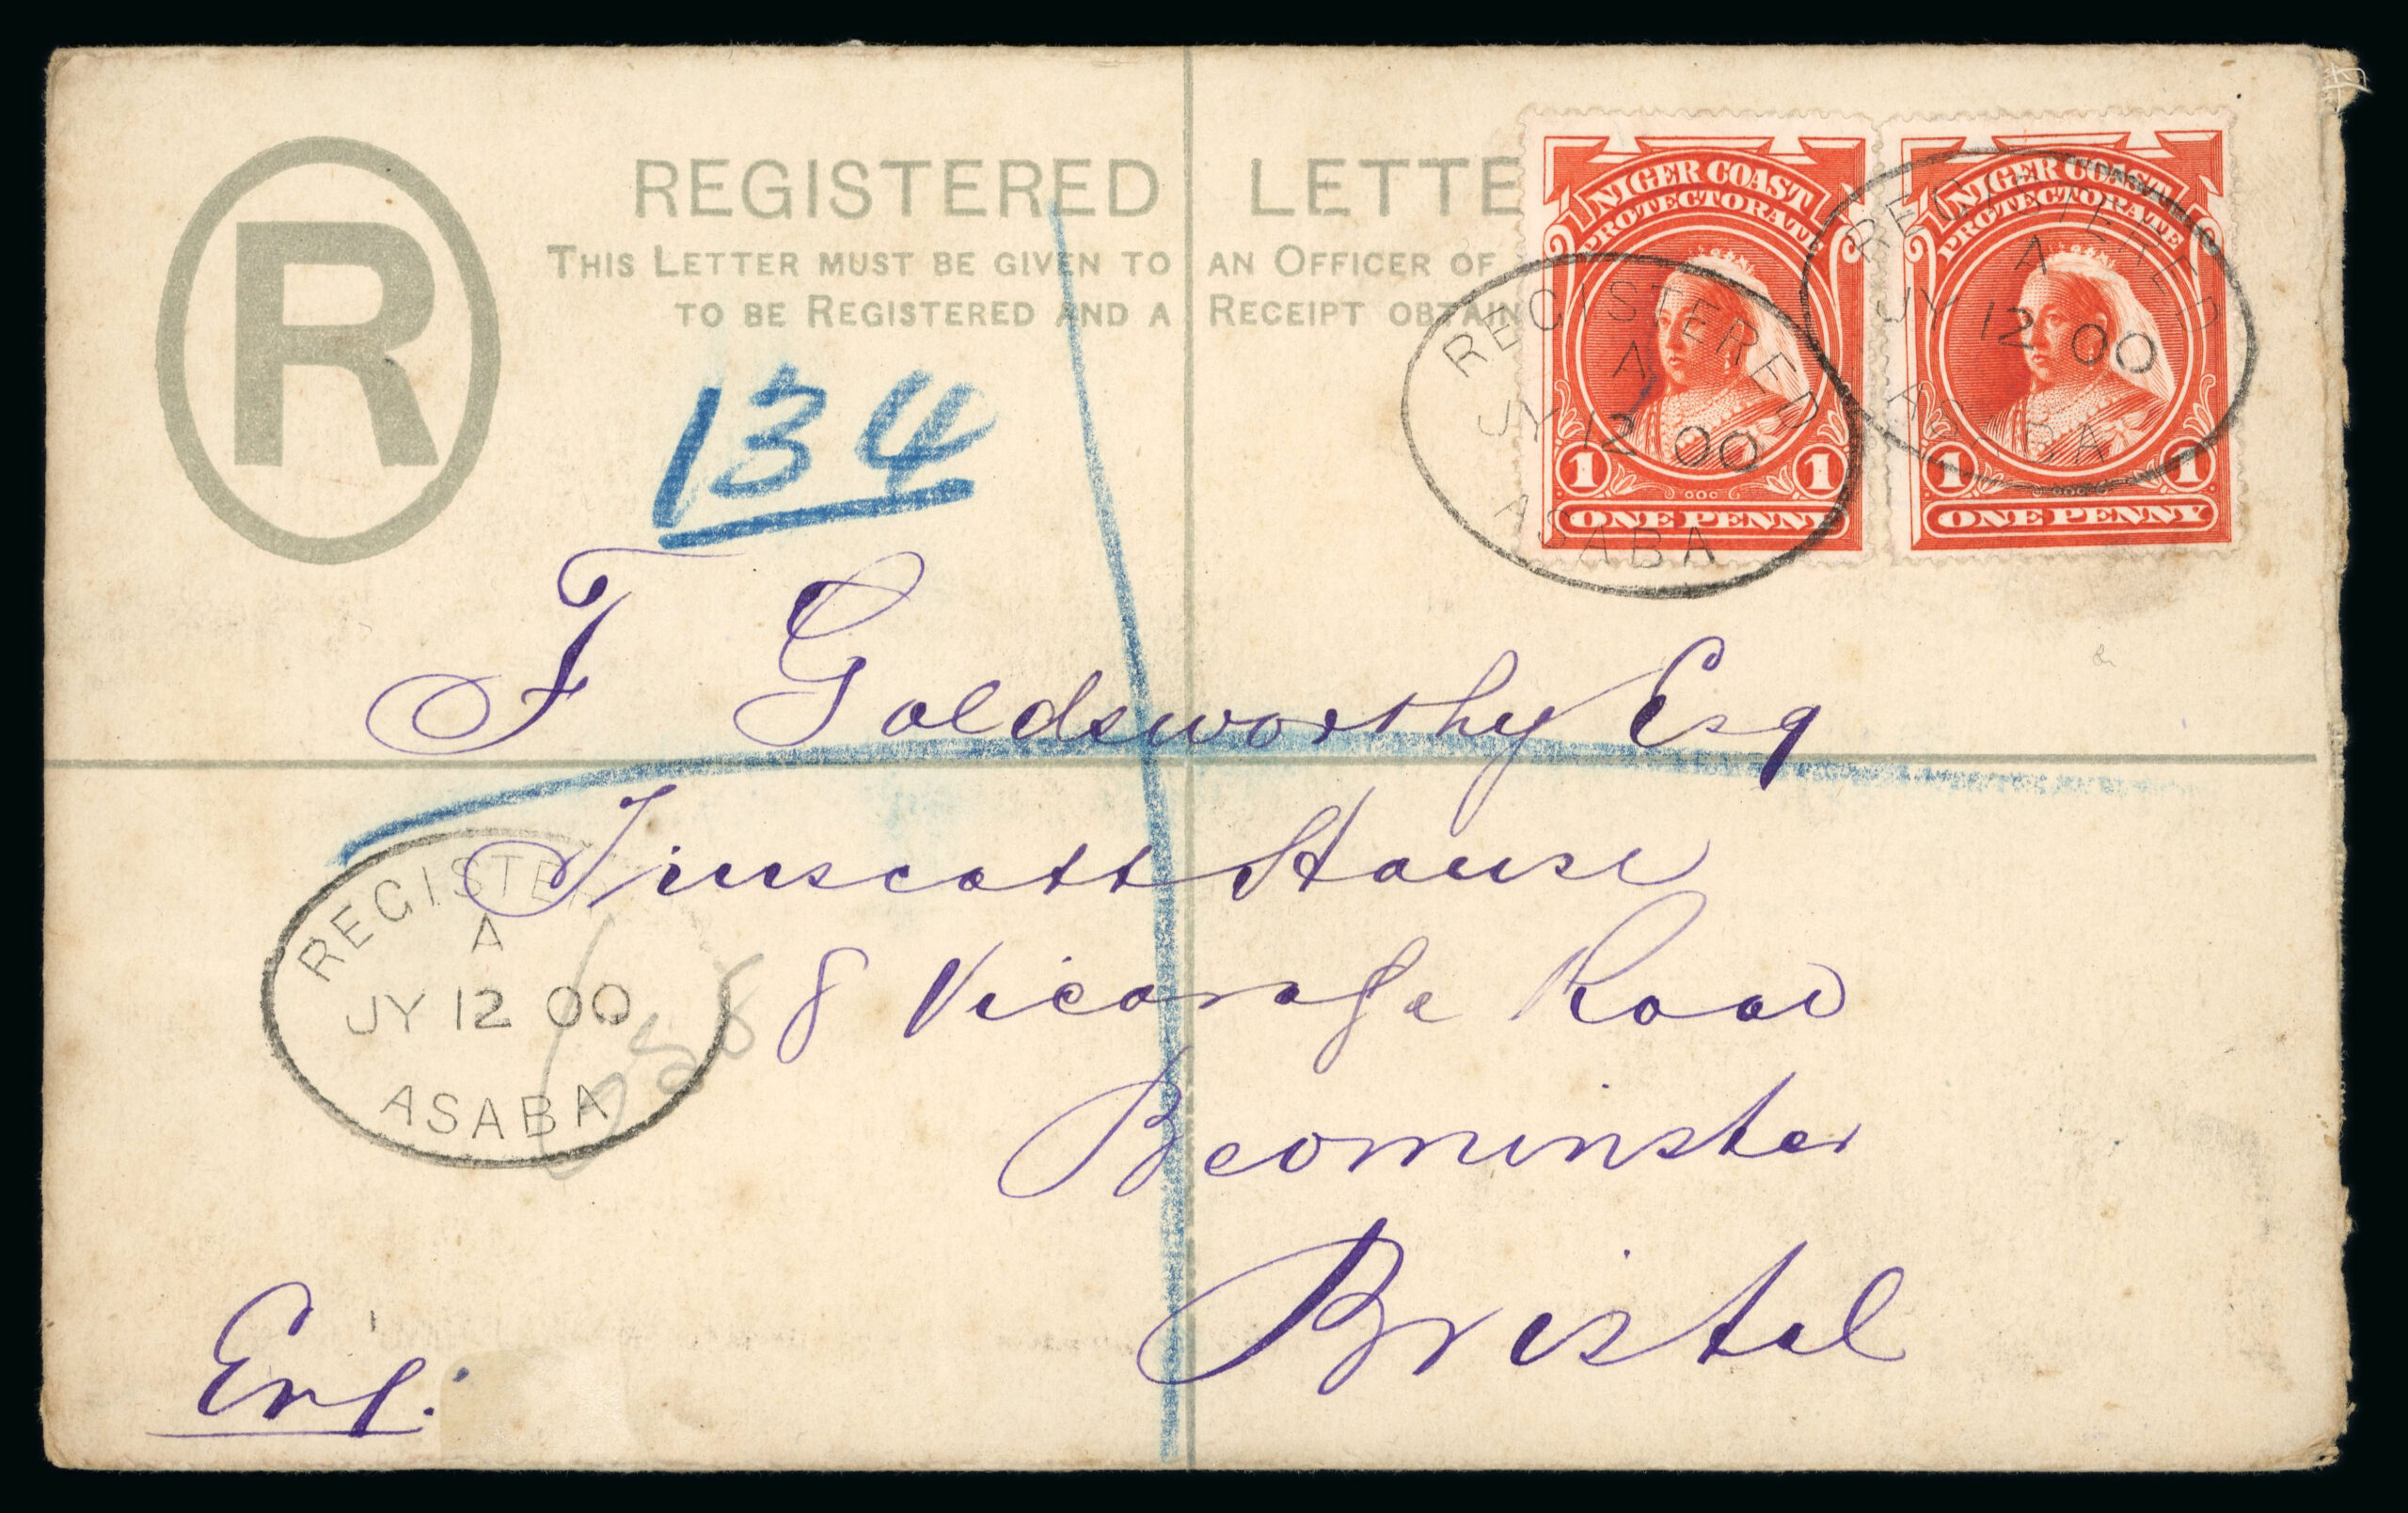 R
REGISTERED LETTE
THIS LETTER MUST BE GIVEN TO AN OFFICER OF
TO BE REGISTERED AND A RECEIPT OBTAIN
NIGER COAST
PROTECTORATE
1 1
ONE PENNY
NIGER COAST
PROTECTORATE
1 1
ONE PENNY
REGISTERED
A
JY 12 00
ASABA
REGISTERED
A
JY 12 00
ASABA
134
F Goldsworthy Esq
House
8 Vicarage Road
Bristol
REGISTER
A
JY 12 00
ASABA
Eng: